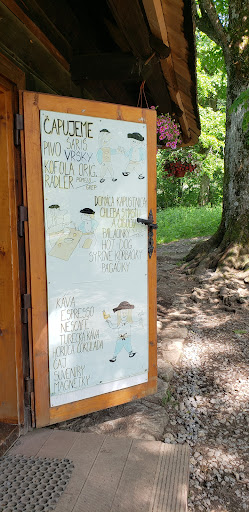 ČAPUJEME
ŠARIŠ
PIVO VRŠKY
KOFOLA ORIG.
RADLER
DOMÁCA KAPUSTNICA
CHLEBA S MAST.
A CIBUĽOU
PALACINKY
HOT DOG
SYROVÉ KORBÁČIKY
PAGÁČIKY
KÁVA
ESPRESSO
NESCAFÉ
TURECKÁ KÁVA
HORÚCA ČOKOLÁDA
ČAJ
SUVENÍRY
MAGNETKY